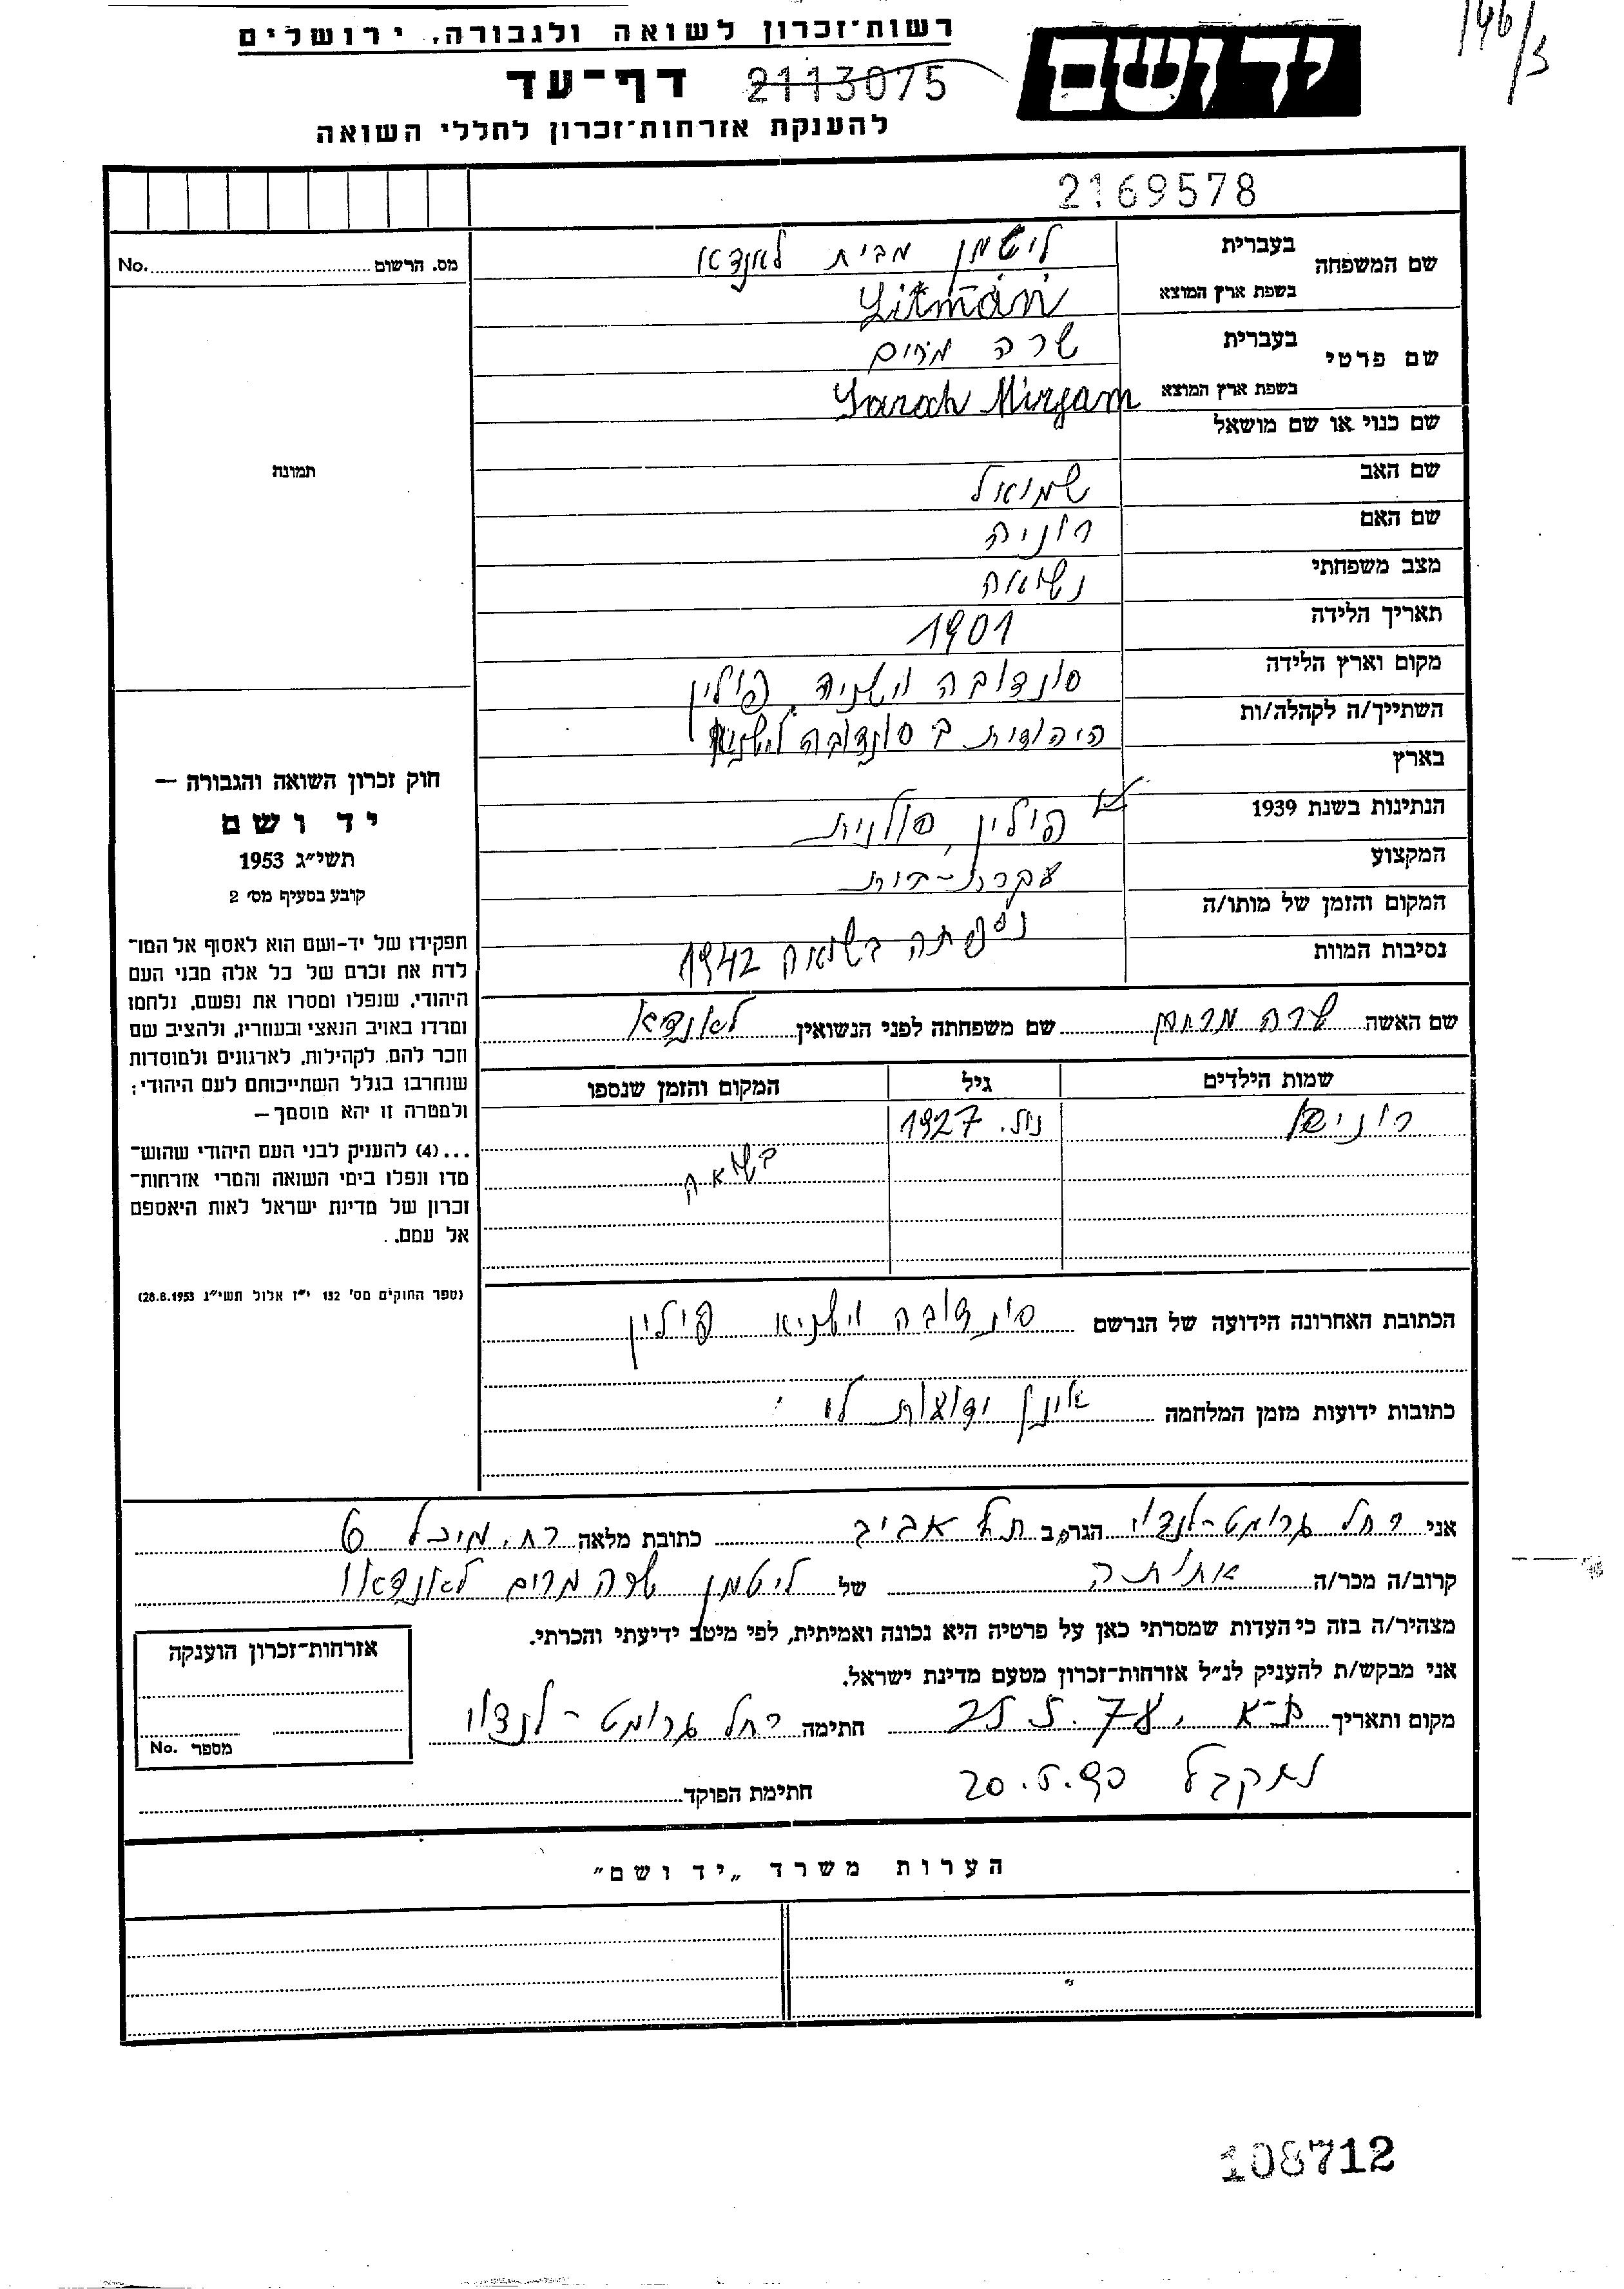 146/3
יד ושם
רשות־זכרון לשואה ולגבורה, ירושלים
דף־עד 2113075
להענקת אזרחות־זכרון לחללי השואה
2169578
מס. הרשום No.
שם המשפחה
בעברית ליטמן מבית לאנדא
בשפת ארץ המוצא Litman
שם פרטי
בעברית שרה מרים
בשפת ארץ המוצא Sarah Mirjam
שם כנוי או שם מושאל
תמונה
שם האב שמואל
שם האם רוניה
מצב משפחתי נשואה
תאריך הלידה 1901
מקום וארץ הלידה סונדובה וישניה, פולין
השתייך/ה לקהלה/ות היהודית ב סונדובה וישניה
בארץ
הנתינות בשנת 1939 פולין, פולנית
המקצוע עקרת-בית
המקום והזמן של מותו/ה
נסיבות המוות נספתה בשואה 1942
שם האשה שרה מרים שם משפחתה לפני הנשואין לאנדא
שמות הילדים גיל המקום והזמן שנספו
נול. 1927
בשואה
חוק זכרון השואה והגבורה —
יד ושם
תשי״ג 1953
קובע בסעיף מס׳ 2
תפקידו של יד-ושם הוא לאסוף אל המו־
לדת את זכרם של כל אלה מבני העם
היהודי, שנפלו ומסרו את נפשם, נלחמו
ומרדו באויב הנאצי ובעוזריו, ולהציב שם
וזכר להם, לקהילות, לארגונים ולמוסדות
שנחרבו בגלל השתייכותם לעם היהודי;
ולמטרה זו יהא מוסמך—
...(4) להעניק לבני העם היהודי שהוש־
מדו ונפלו בימי השואה והמרי אזרחות־
זכרון של מדינת ישראל לאות היאספם
אל עמם.
(ספר החוקים מס׳ 132 י״ז אלול תשי״ג 28.8.1953)
הכתובת האחרונה הידועה של הנרשם סונדובה וישניא פולין
כתובות ידועות מזמן המלחמה אינן ידועות לי
אני רחל גרומט-לנדוי הגר/ה ב תל אביב כתובת מלאה רח. מיכל 6
קרוב/ה מכר/ה אחותה של ליטמן שרה מרים לאנדאו
מצהיר/ה בזה כי העדות שמסרתי כאן על פרטיה היא נכונה ואמיתית, לפי מיטב ידיעתי והכרתי.
אני מבקש/ת להעניק לנ״ל אזרחות־זכרון מטעם מדינת ישראל.
מקום ותאריך ת-א, 25.5.78 חתימה רחל גרומט-לנדוי
נתקבל 20.5.90
חתימת הפוקד
אזרחות־זכרון הוענקה
מספר No.
הערות משרד „יד ושם״
108712